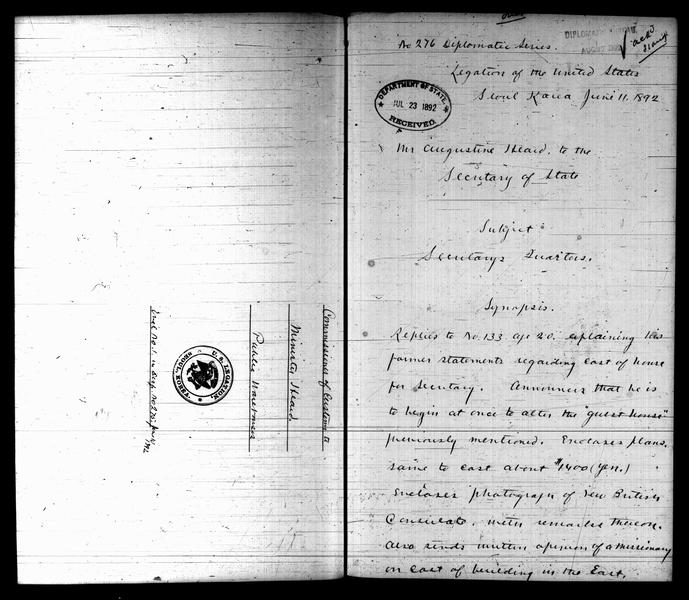 Commissioner of Customs to
Minister Heard.
Public
U.S. LEGATION,
SEOUL, KOREA.
No 276 Diplomatic Series.
DIPLOMATIC
Legation of the United States
Seoul Korea June 11, 1892
DEPARTMENT OF STATE,
JUL 23 1892
RECEIVED.
Mr Augustine Heard, to the
Secretary of State
Subject:
Secretarys Quarters.
Synopsis.
Replies to No. 133 Apl 20. explaining his
former statements regarding cost of house
for Secretary. Announces that he is
to begin at once to alter the "guest house"
previously mentioned. Encloses plans.
same to cost about $1400 (Yen.)
Encloses photograph of New British
Consulate, with remarks thereon.
Also sends written opinion of a missionary
on cost of building in the East.